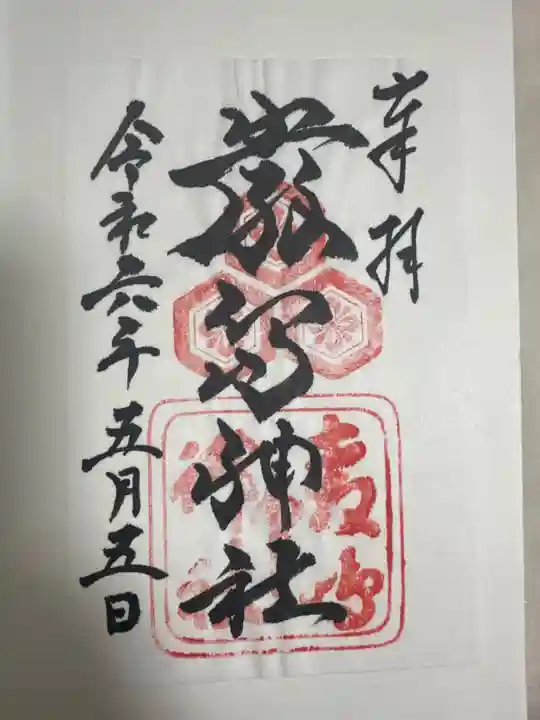 奉拝
嚴島神社
令和六年五月五日